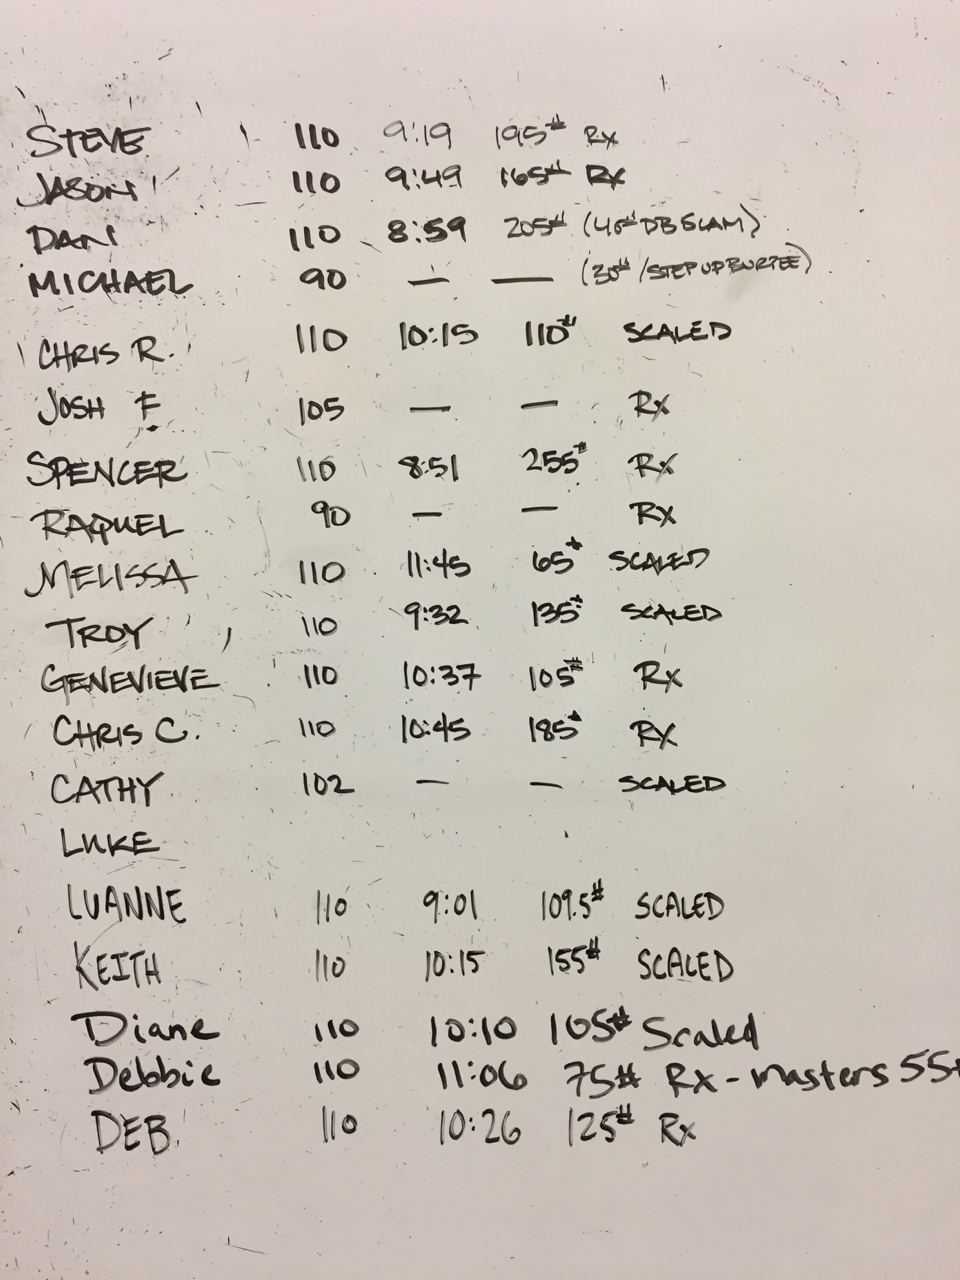 STEVE 110 9:19 195# Rx
JASON 110 9:49 165# Rx
DAN 110 8:59 205# (40# DB SLAM)
MICHAEL 90 — — (30# /STEP UP BURPEE)
CHRIS R. 110 10:15 110# SCALED
JOSH F. 105 — — Rx
SPENCER 110 8:51 255# Rx
RAQUEL 90 — — Rx
MELISSA 110 11:45 65# SCALED
TROY 110 9:32 135# SCALED
GENEVIEVE 110 10:37 105# Rx
CHRIS C. 110 10:45 185# Rx
CATHY 102 — — SCALED
LUKE
LUANNE 110 9:01 109.5# SCALED
KEITH 110 10:15 155# SCALED
Diane 110 10:10 105# Scaled
Debbie 110 11:06 75# Rx - masters 55+
DEB. 110 10:26 125# Rx